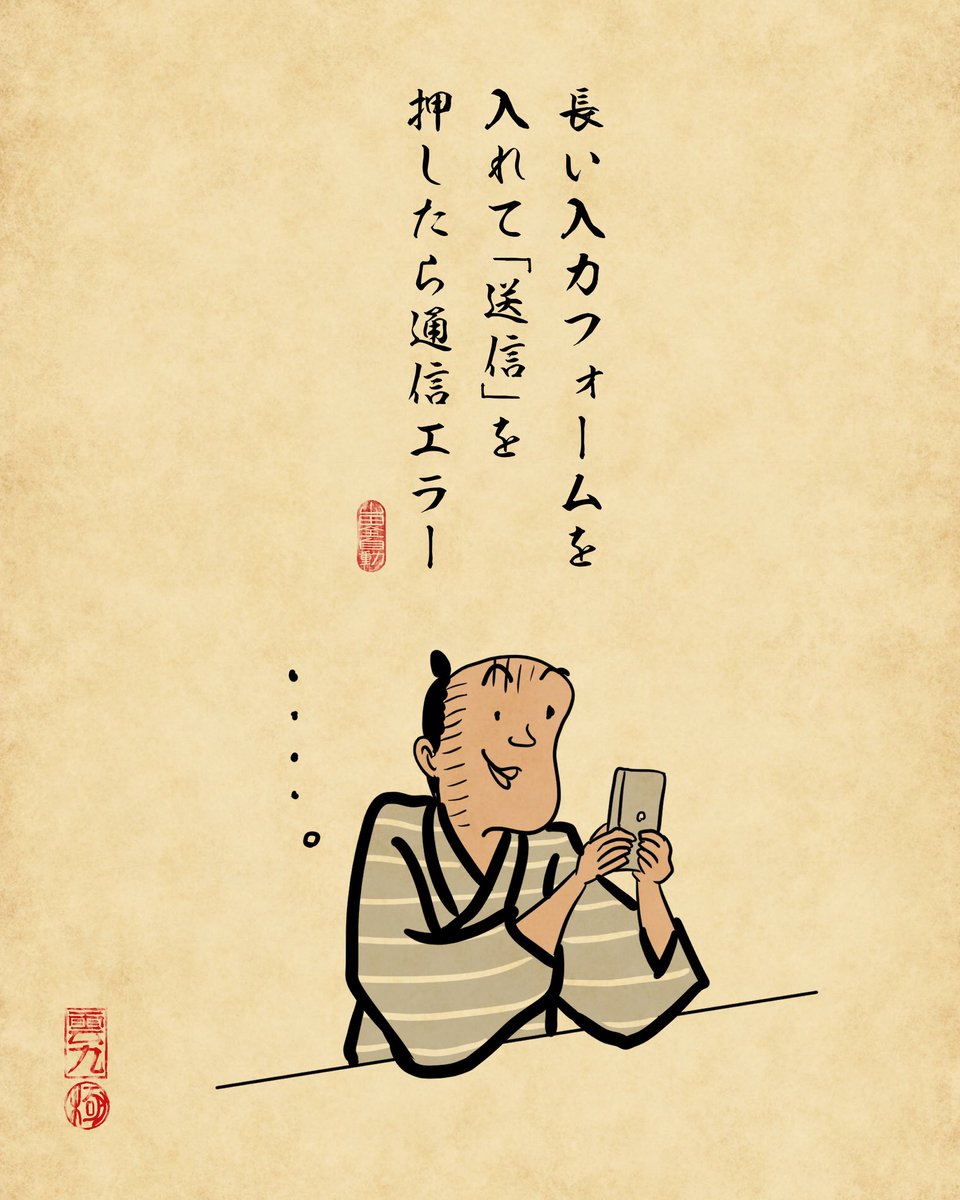 長い入力フォームを
入れて「送信」を
押したら通信エラー
雲九
極